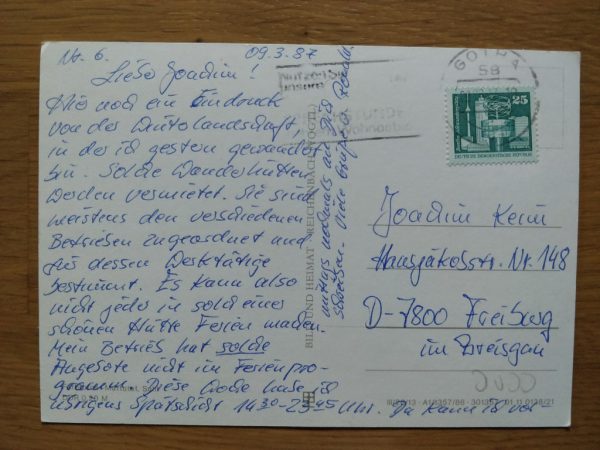 Nr. 6. 09.3.87
Lieber Joachim!
Hier noch ein Eindruck
von der Winterlandschaft,
in der ich gestern gewandert
bin. Solche Wanderhütten
werden vermietet. Sie sind
meistens den verschiedenen
Betrieben zugeordnet und
für dessen Werktätige
bestimmt. Es kann also
nicht jeder in solch einer
schönen Hütte Ferien machen.
Mein Betrieb hat solche
Angebote nicht im Ferienpro-
gramm. Diese Woche habe ich
übrigens Spätschicht 14³⁰-23⁴⁵ Uhr. Da kann ich vor-
mittags nochmals an Dich
schreiben. Viele Grüße
BILD UND HEIMAT REICHENBACH (VOGTL)
GOTHA
58
25
DEUTSCHE DEMOKRATISCHE REPUBLIK
Joachim Keim
Hansjakobstr. Nr. 148
D-7800 Freiburg
im Breisgau
III/18/13 A1/1357/86 301357 01 11 0138/21